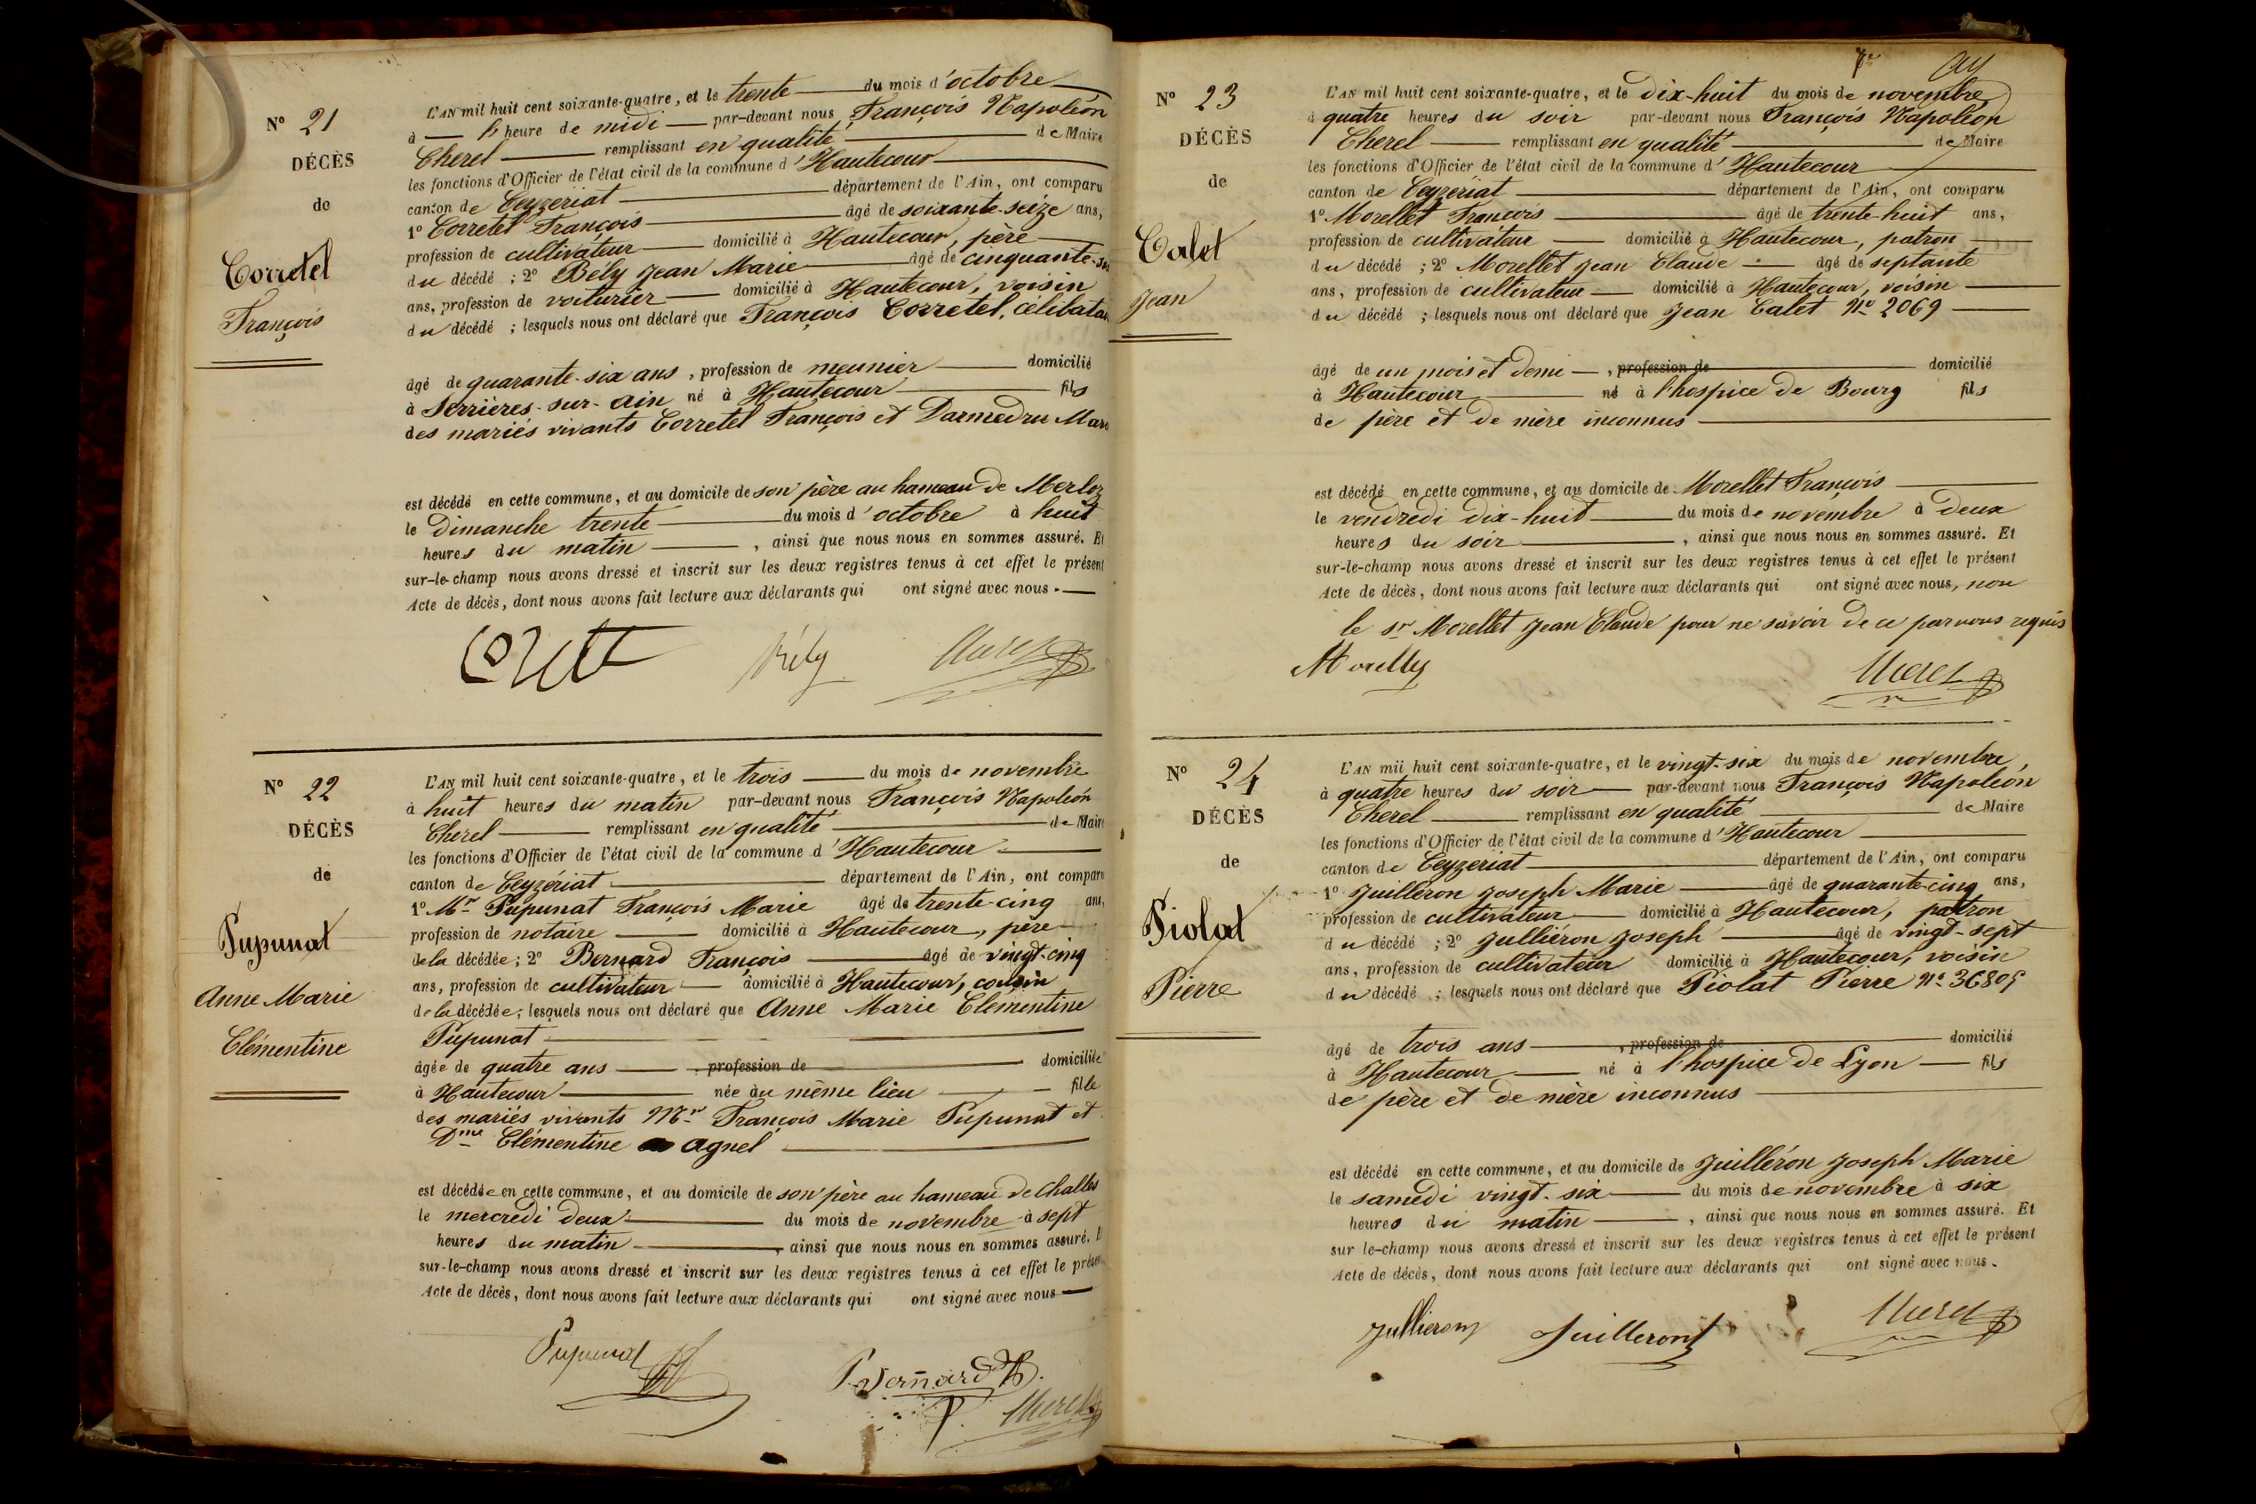 Nº 21
DÉCÈS
de
Corretel
François
L'AN mil huit cent soixante-quatre, et le trente du mois d'octobre
à l'heure de midi par-devant nous François Napoléon
Cherel remplissant en qualité de Maire
les fonctions d'Officier de l'état civil de la commune d'Hautecour
canton de Ceyzeriat département de l'Ain, ont comparu
1º Corretel François âgé de soixante-seize ans,
profession de cultivateur domicilié à Hautecour, père
du décédé ; 2º Bely Jean Marie âgé de cinquante-
ans, profession de voiturier domicilié à Hautecour, voisin
du décédé ; lesquels nous ont déclaré que François Corretel, célibatai
âgé de quarante-six ans, profession de meunier domicilié
à Serrières-sur-ain né à Hautecour fils
des mariés vivants Corretel François et Darmedru Mar
est décédé en cette commune, et au domicile de son père au hameau de Merloz
le Dimanche trente du mois d'octobre à huit
heures du matin, ainsi que nous nous en sommes assuré. Et
sur-le-champ nous avons dressé et inscrit sur les deux registres tenus à cet effet le présent
Acte de décès, dont nous avons fait lecture aux déclarants qui ont signé avec nous.
Bély Cherel
Nº 22
DÉCÈS
de
Pupunat
Anne Marie
Clémentine
L'AN mil huit cent soixante-quatre, et le trois du mois de novembre
à huit heures du matin par-devant nous François Napoléon
Cherel remplissant en qualité de Maire
les fonctions d'Officier de l'état civil de la commune d'Hautecour
canton de Ceyzériat département de l'Ain, ont comparu
1º Mr Pupunat François Marie âgé de trente-cinq ans,
profession de notaire domicilié à Hautecour, père
de la décédée ; 2º Bernard François âgé de vingt-cinq
ans, profession de cultivateur domicilié à Hautecour, cousin
de la décédée ; lesquels nous ont déclaré que Anne Marie Clementine
Pupunat
âgée de quatre ans profession de domiciliée
à Hautecour née au même lieu fille
des mariés vivants Mr François Marie Pupunat et
Dme Clémentine Agnel
est décédée en cette commune, et au domicile de son père au hameau de Challes
le mercredi deux du mois de novembre à sept
heures du matin, ainsi que nous nous en sommes assuré. E
sur-le-champ nous avons dressé et inscrit sur les deux registres tenus à cet effet le présen
Acte de décès, dont nous avons fait lecture aux déclarants qui ont signé avec nous
Pupunat
Bernard
Cherel
Nº 23
DÉCÈS
de
Calet
Jean
L'AN mil huit cent soixante-quatre, et le dix-huit du mois de novembre
à quatre heures du soir par-devant nous François Napoléon
Cherel remplissant en qualité de Maire
les fonctions d'Officier de l'état civil de la commune d'Hautecour
canton de Ceyzeriat département de l'Ain, ont comparu
1º Morellet François âgé de trente-huit ans,
profession de cultivateur domicilié à Hautecour, patron
du décédé ; 2º Morellet Jean Claude âgé de septante
ans, profession de cultivateur domicilié à Hautecour, voisin
du décédé ; lesquels nous ont déclaré que Jean Calet No 2069
âgé de un mois et demi, profession de domicilié
à Hautecour né à l'hospice de Bourg fils
de père et de mère inconnus
est décédé en cette commune, et au domicile de Morellet François
le vendredi dix-huit du mois de novembre à deux
heures du soir, ainsi que nous nous en sommes assuré. Et
sur-le-champ nous avons dressé et inscrit sur les deux registres tenus à cet effet le présent
Acte de décès, dont nous avons fait lecture aux déclarants qui ont signé avec nous, non
le sr Morellet Jean Claude pour ne savoir de ce par nous requis
Cherel
Nº 24
DÉCÈS
de
Piolat
Pierre
L'AN mil huit cent soixante-quatre, et le vingt-six du mois de novembre,
à quatre heures du soir par-devant nous François Napoléon
Cherel remplissant en qualité de Maire
les fonctions d'Officier de l'état civil de la commune d'Hautecour
canton de Ceyzeriat département de l'Ain, ont comparu
1º Juilleron Joseph Marie âgé de quarante-cinq ans,
profession de cultivateur domicilié à Hautecour, patron
du décédé ; 2º Julliéron Joseph âgé de vingt-sept
ans, profession de cultivateur domicilié à Hautecour, voisin
du décédé ; lesquels nous ont déclaré que Piolat Pierre No 36805
âgé de trois ans, profession de domicilié
à Hautecour né à l'hospice de Lyon fils
de père et de mère inconnus
est décédé en cette commune, et au domicile de Juilléron Joseph Marie
le samedi vingt-six du mois de novembre à six
heures du matin, ainsi que nous nous en sommes assuré. Et
sur le-champ nous avons dressé et inscrit sur les deux registres tenus à cet effet le présent
Acte de décès, dont nous avons fait lecture aux déclarants qui ont signé avec nous.
Jullieron Juilleront Cherel